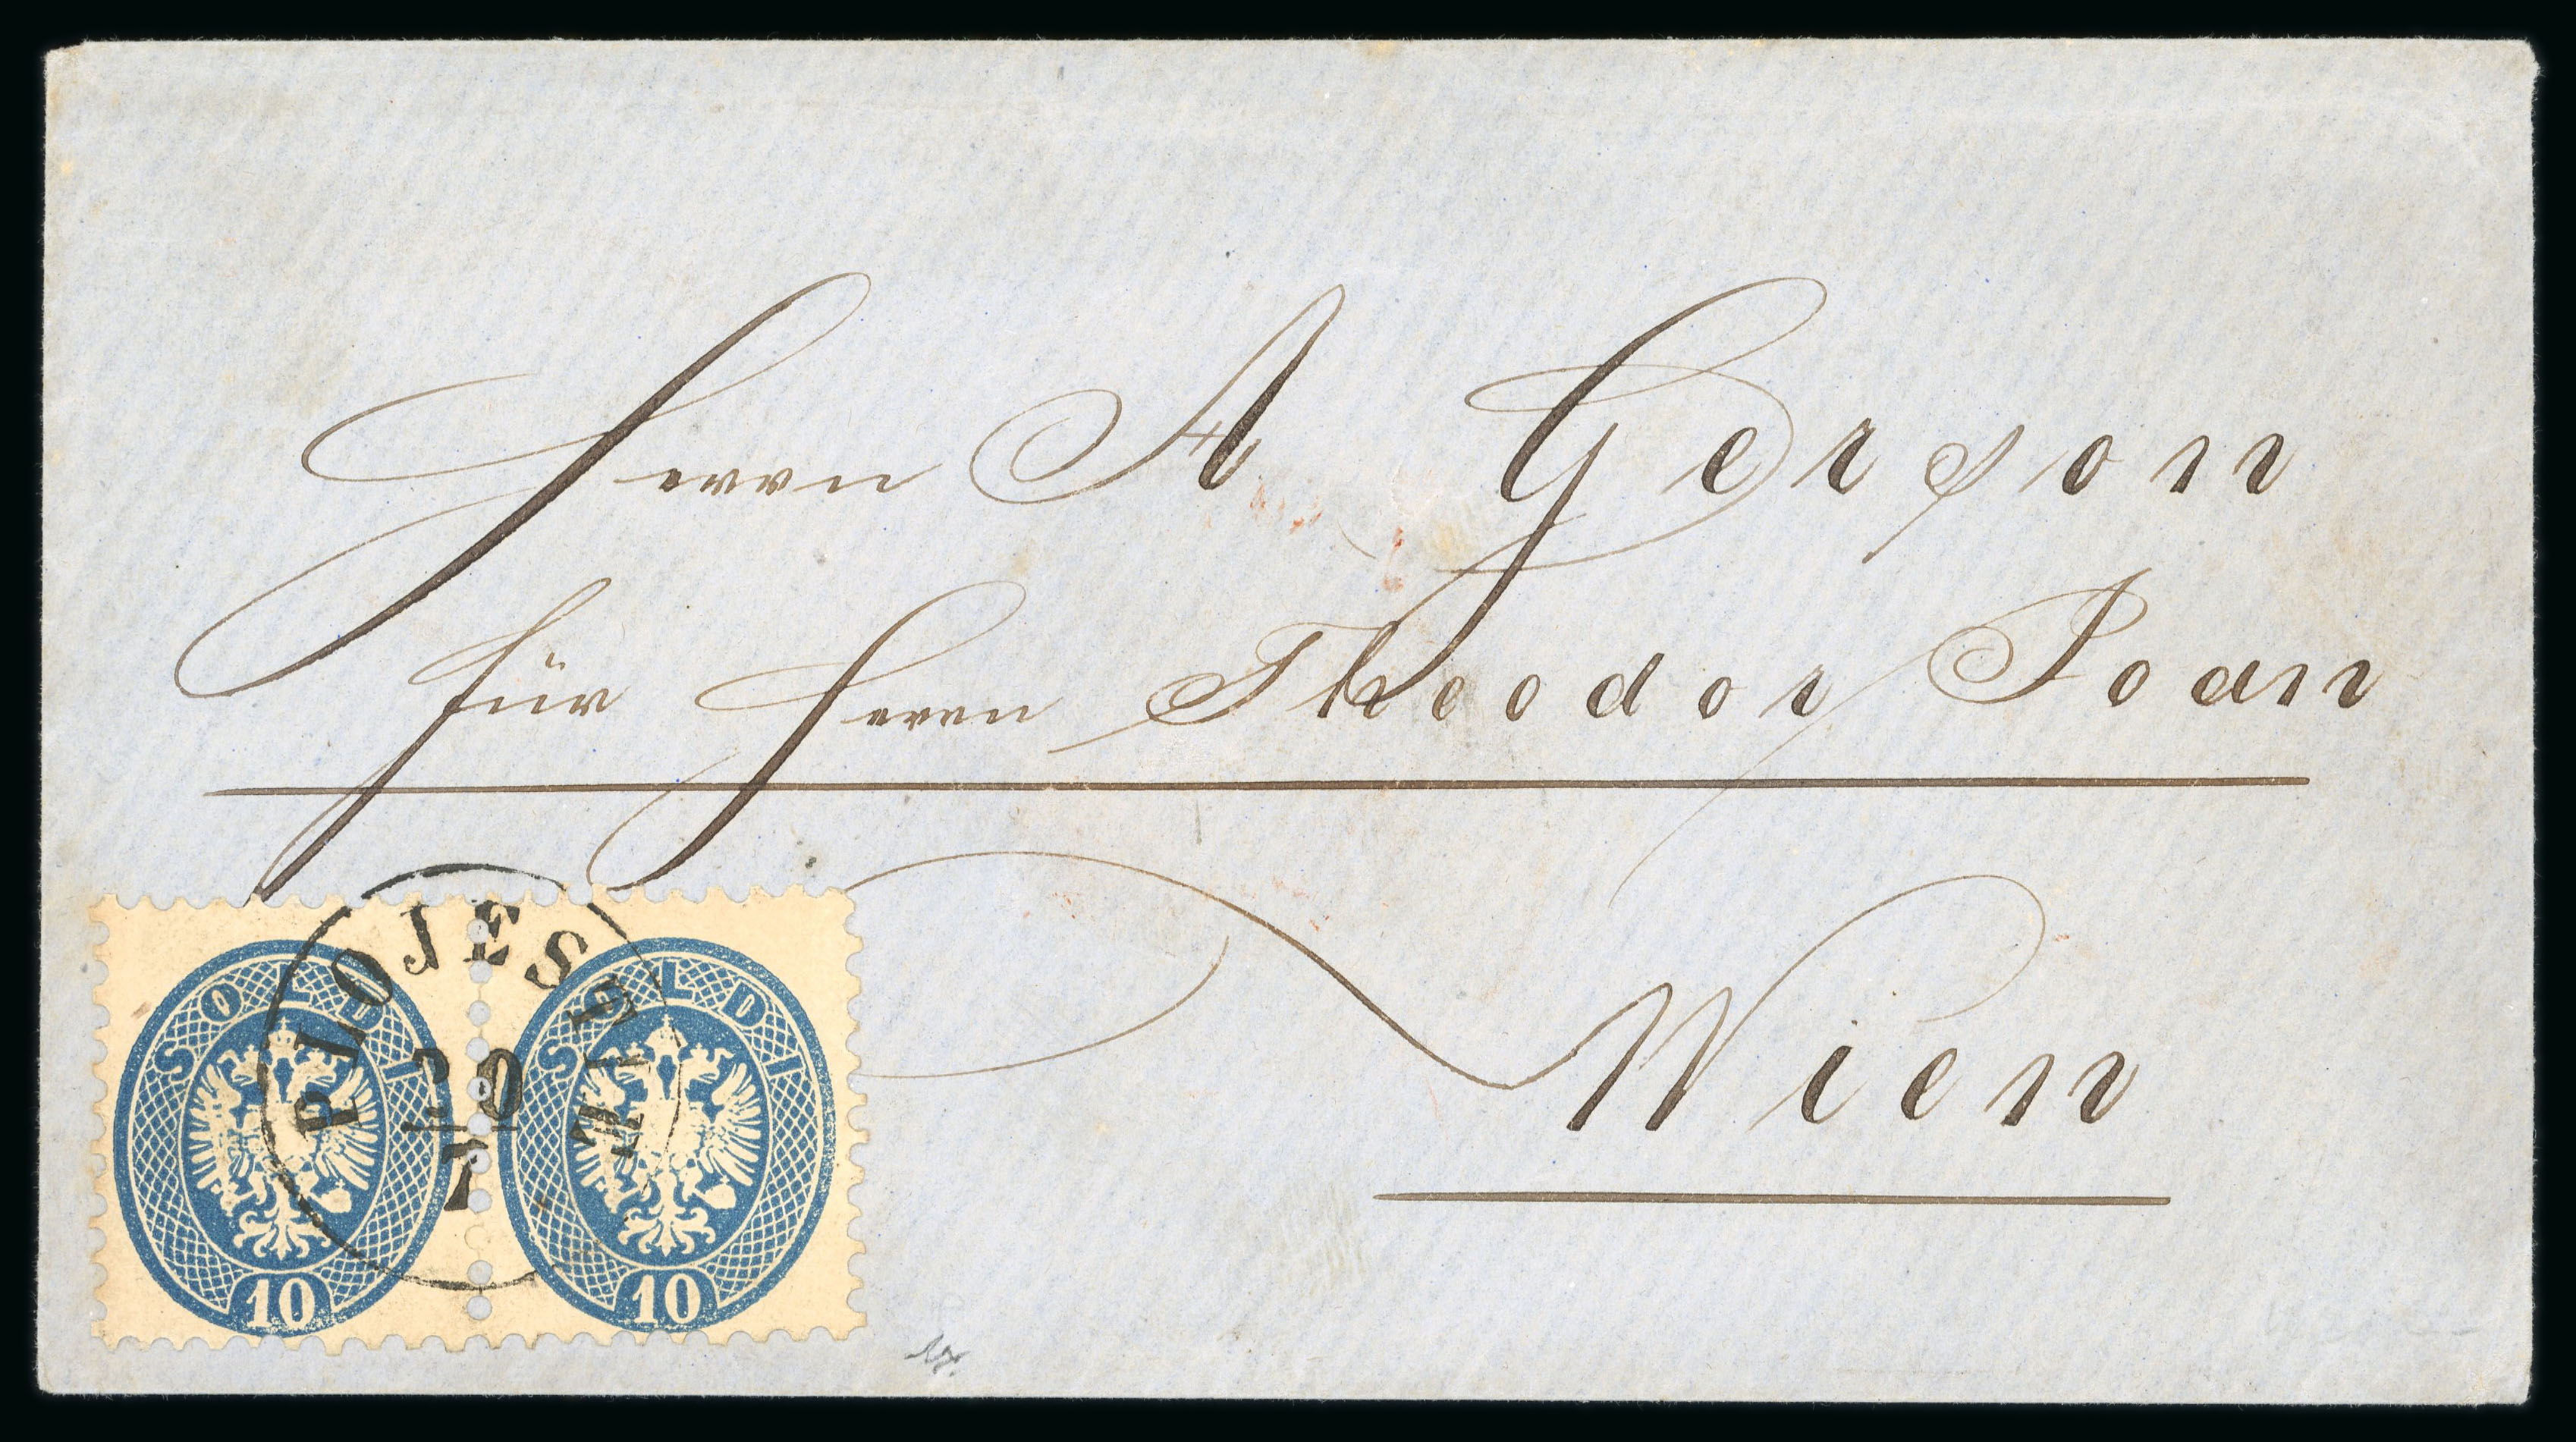 Herrn A Gerson
für Herrn Theodor Ioan
Wien
PLOJESTIE
20
7
SOLDI
10
SOLDI
10